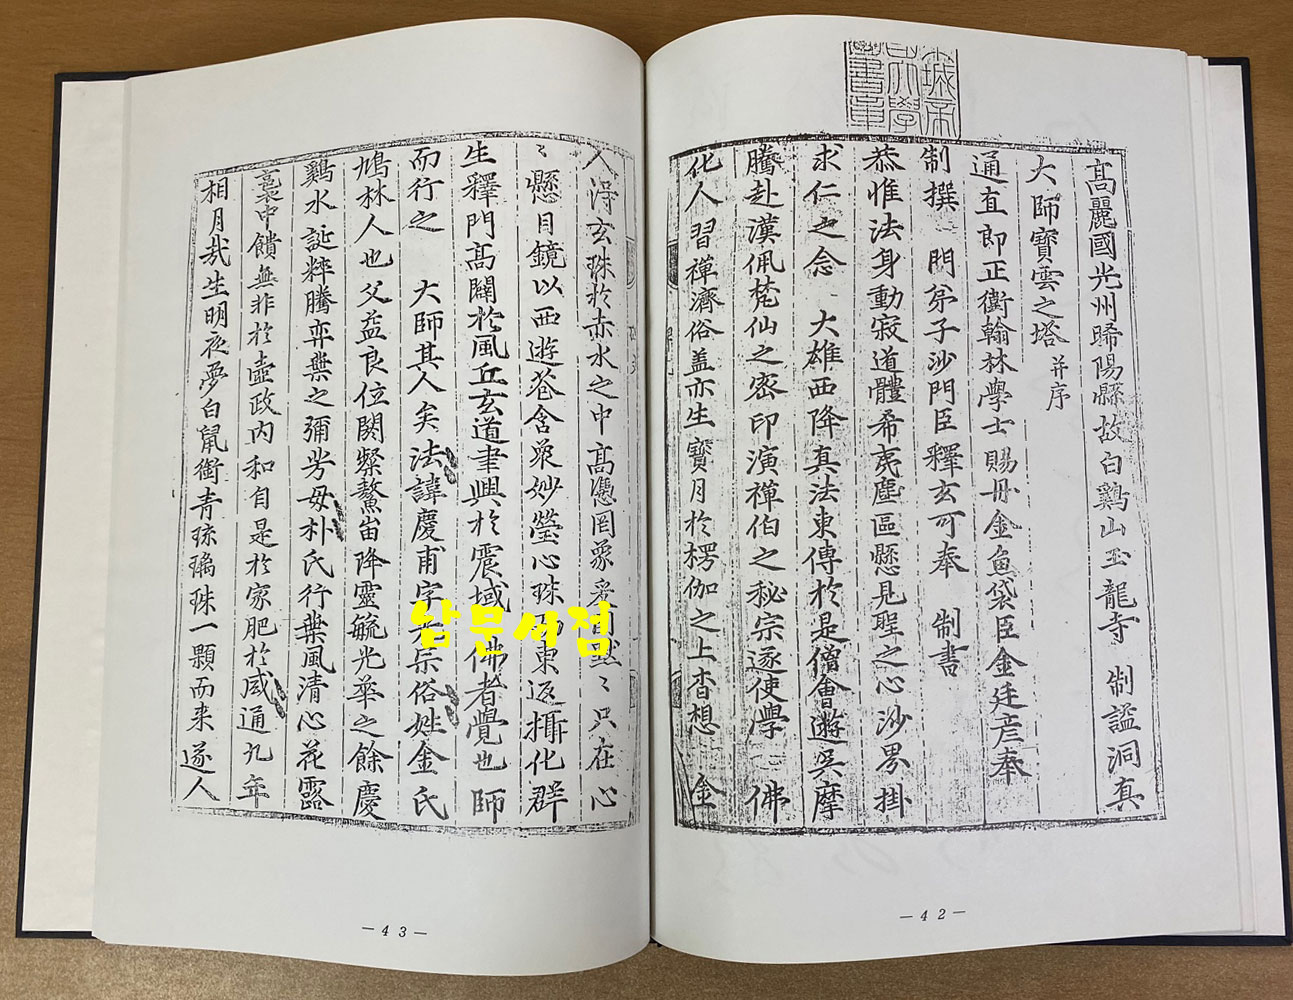 高麗國光州晞陽縣故白鷄山玉龍寺 制諡洞真
大師寶雲之塔 并序
通直郎正衛翰林學士賜丹金魚袋臣金廷彦奉
制撰 門弟子沙門臣釋玄可奉 制書
恭惟法身動寂道體希夷塵區懸見聖之心沙界掛
求仁之念 大雄西降真法東傳於是僧會遊吳摩
騰赴漢佩梵仙之密印演禪伯之秘宗遂使學 佛
化人習禪濟俗盖亦生寶月於楞伽之上杳想 金
-42-
人淂玄珠於赤水之中高憑罔象爰自然々只在心
々懸目鏡以西遊含衆妙瑩心珠而東返攝化群
生釋門高闢於風丘玄道聿興於震域佛者覺也師
而行之 大師其人矣法諱慶甫字光宗俗姓金氏
鳩林人也父益良位閼粲鰲岫降靈毓光華之餘慶
鷄水誕粹騰弈葉之彌芳母朴氏行葉風清心花露
裛中饋無非於壼政内和自是於家肥於咸通九年
相月哉生明夜夢白鼠銜青琉璃珠一顆而来遂人
-43-
남문서점